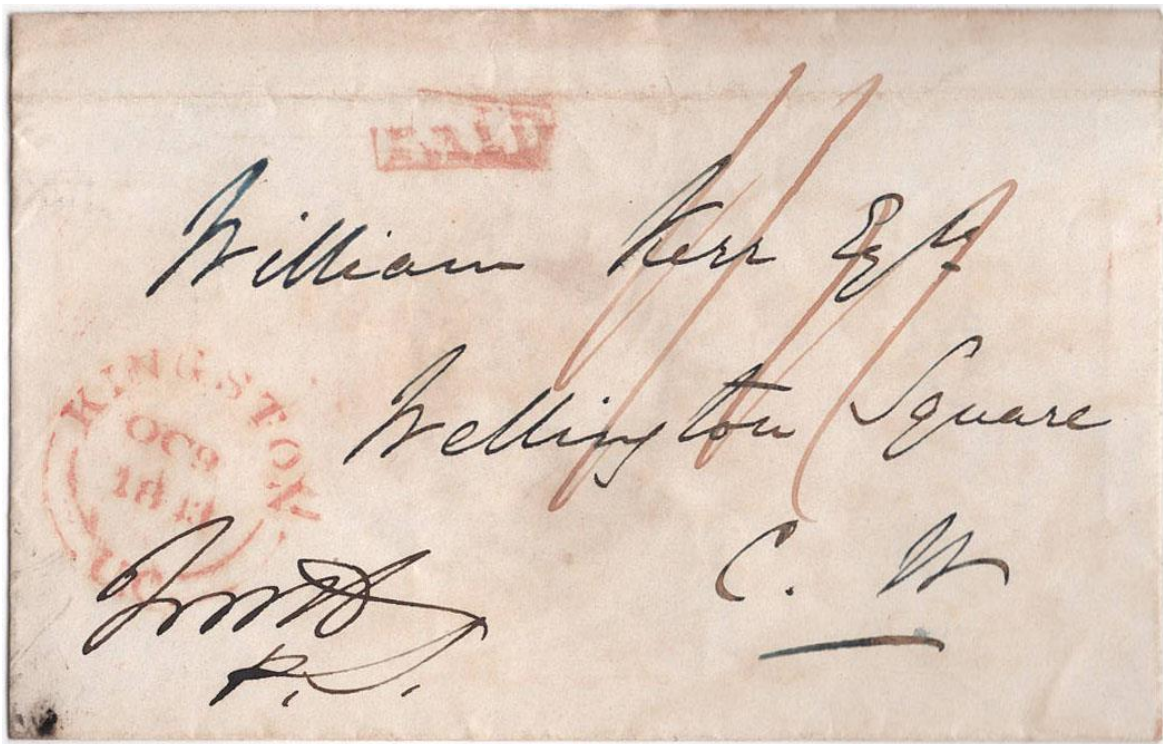 PAID
William Kerr Esqre
Wellington Square
C. W
KINGSTON
OC 9
184
UC
P.S.